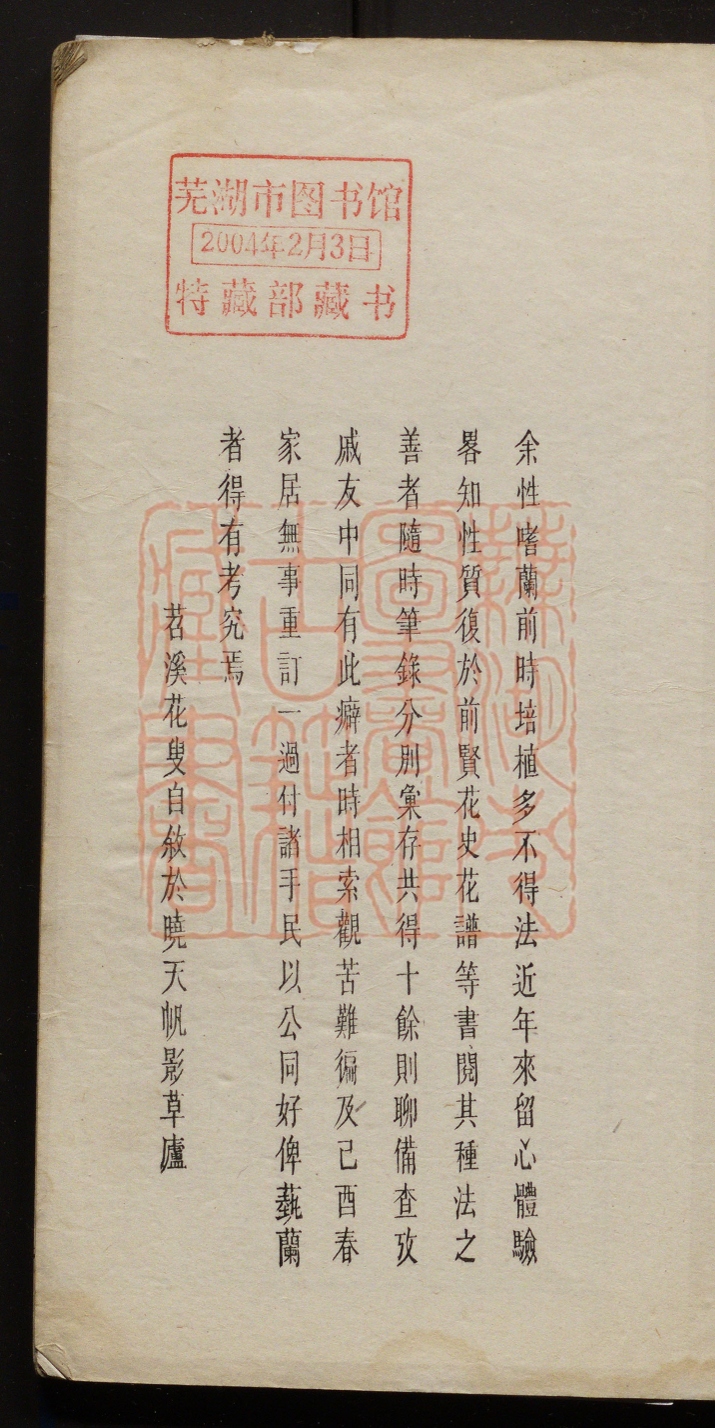 芜湖市图书馆
2004年2月3日
特藏部藏书
余性嗜蘭前時培植多不得法近年來留心體驗
畧知性質復於前賢花史花譜等書閱其種法之
善者隨時筆錄分別彙存共得十餘則聊備查攷
戚友中同有此癖者時相索觀苦難徧及己酉春
家居無事重訂一過付諸手民以公同好俾藝蘭
者得有考究焉
苕溪花叟自敘於曉天帆影草廬